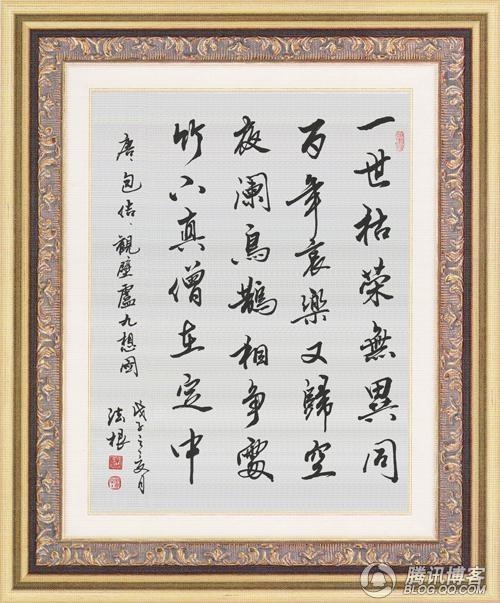 一世枯荣無異同
百年哀樂又歸空
夜闌鳥鵲相争處
竹下真僧在定中
唐、包佶、觀壁盧九想圖
戊子之夏月
法根
腾讯博客
BLOG.QQ.COM